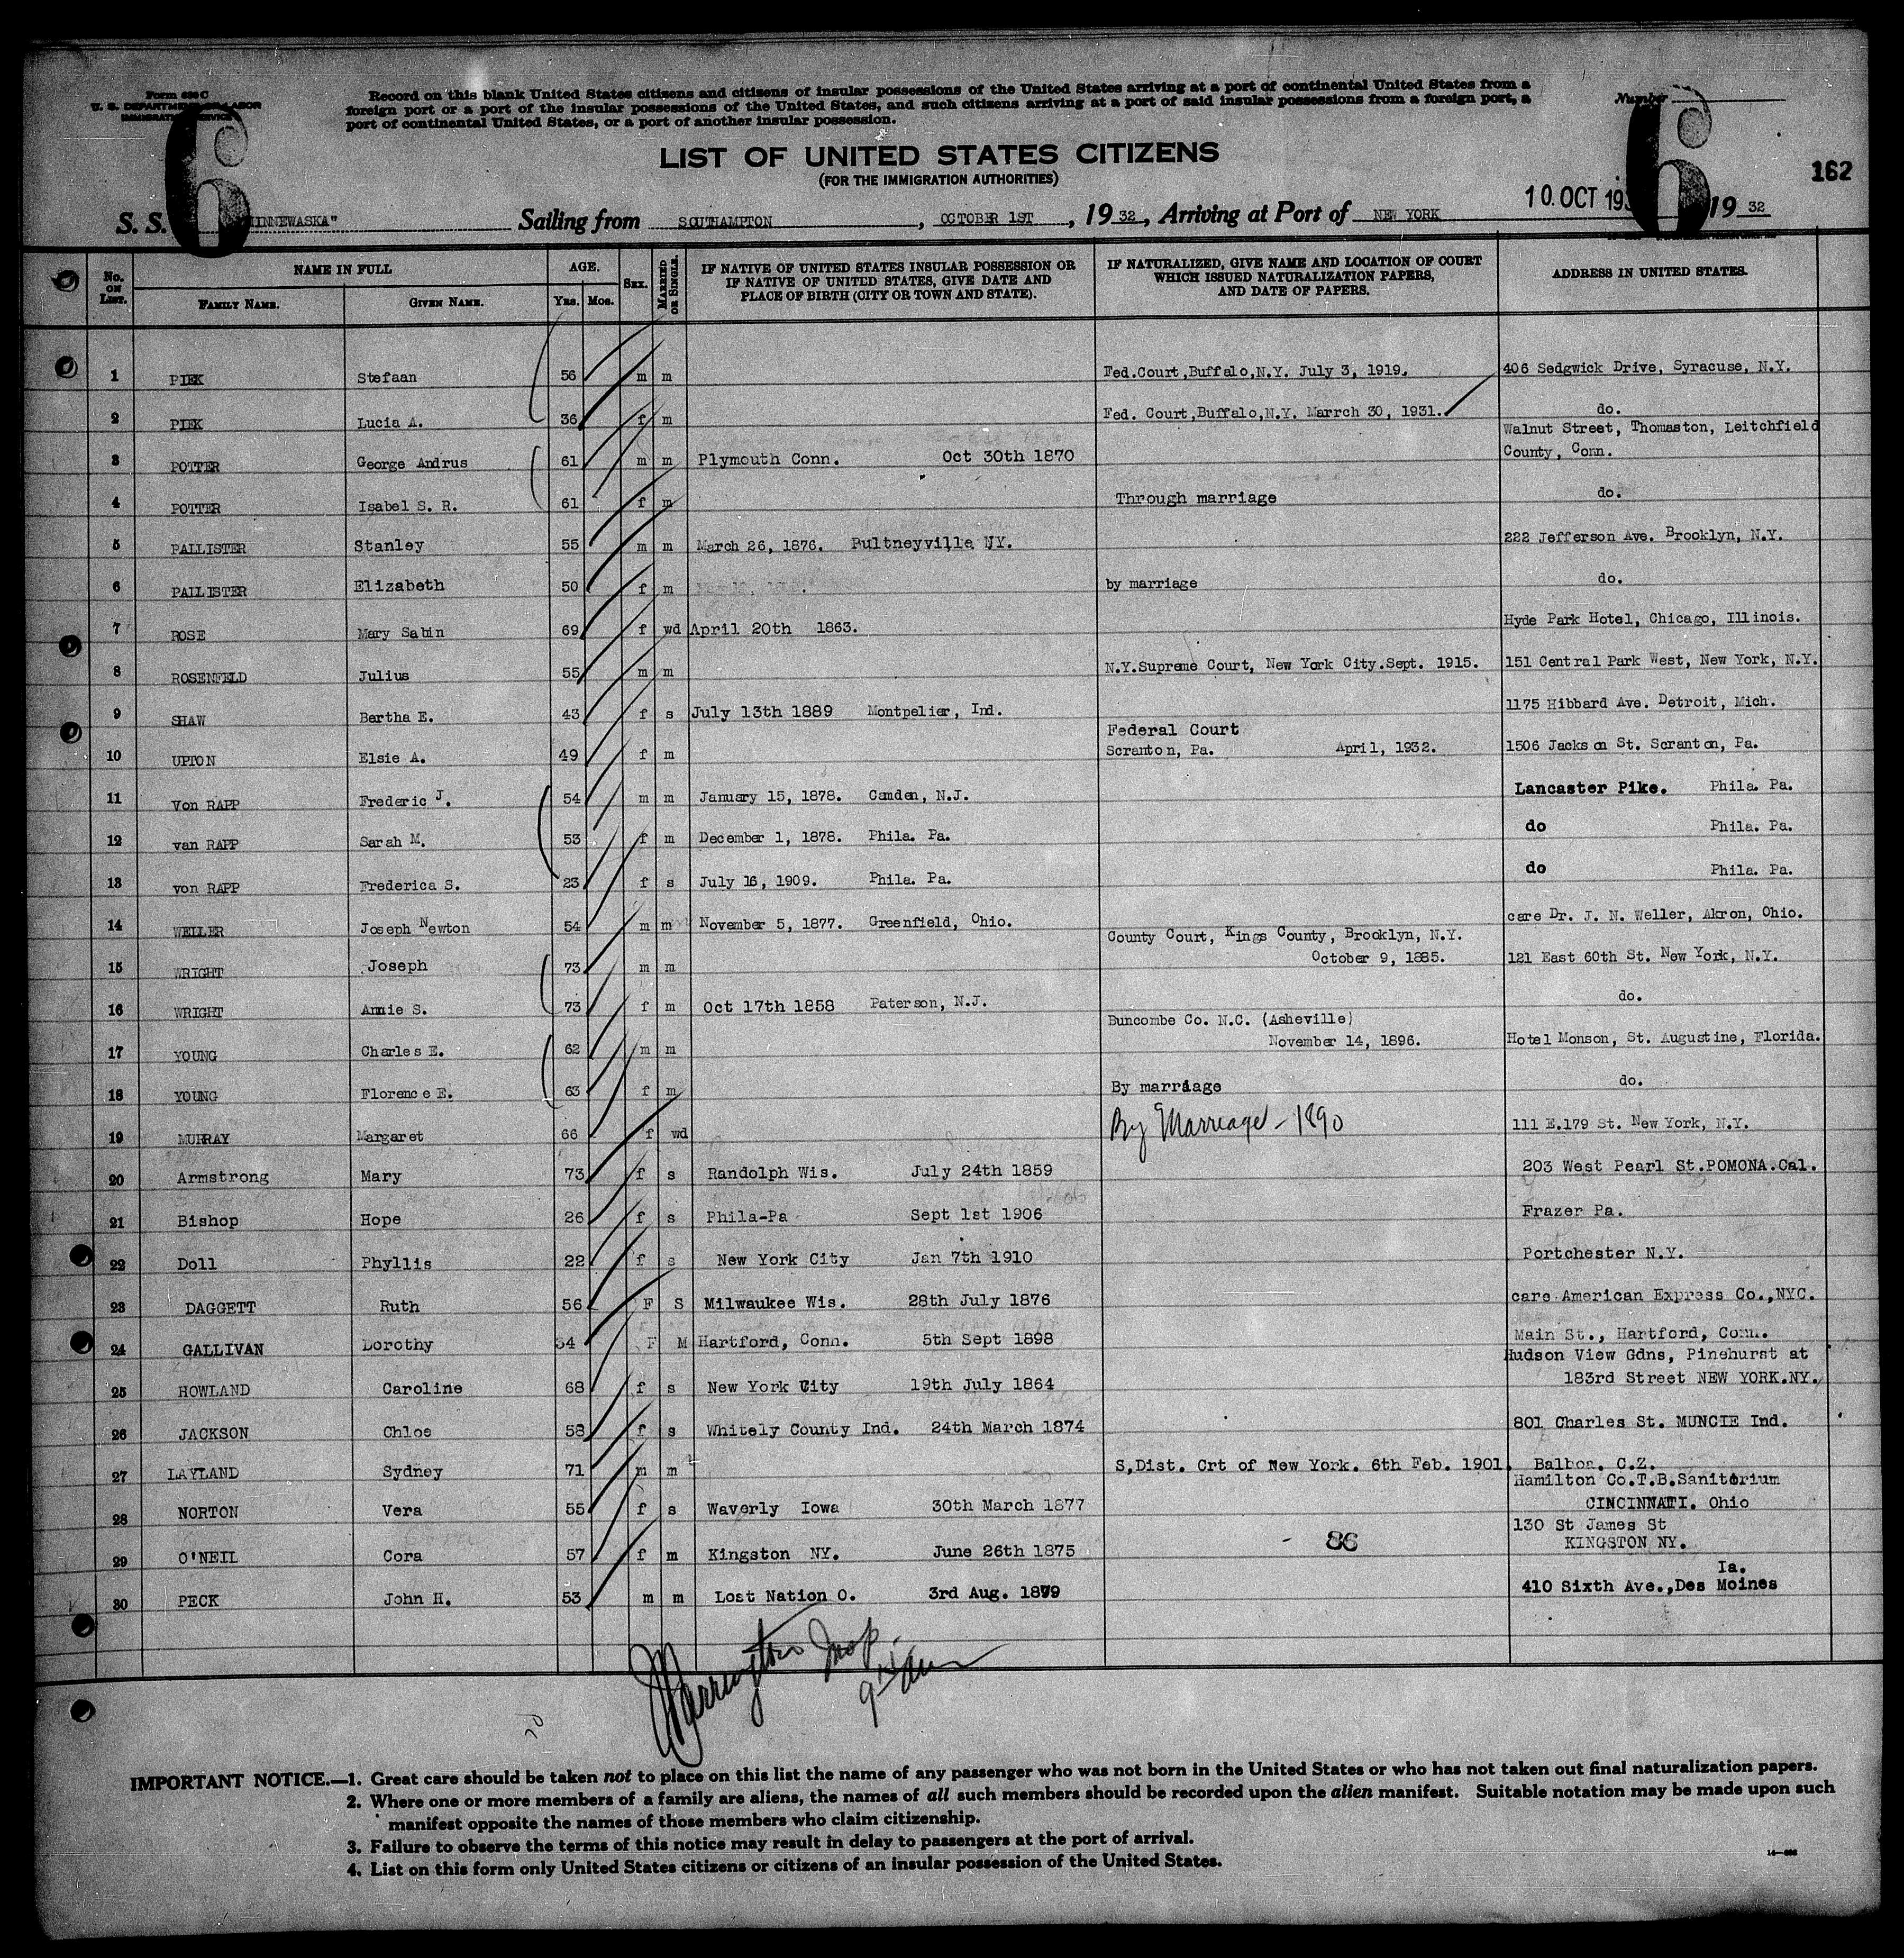 Form 630 C
U. S. DEPARTMENT OF LABOR
IMMIGRATION SERVICE
Record on this blank United States citizens and citizens of insular possessions of the United States arriving at a port of continental United States from a
foreign port or a port of the insular possessions of the United States, and such citizens arriving at a port of said insular possessions from a foreign port, a
port of continental United States, or a port of another insular possession.
Number
6
6
LIST OF UNITED STATES CITIZENS
(FOR THE IMMIGRATION AUTHORITIES)
162
S. S. INNEWASKA" Sailing from SOUTHAMPTON, OCTOBER 1ST, 19 32, Arriving at Port of NEW YORK 10. OCT 193 19 32
No. ON LIST. NAME IN FULL AGE. SEX. MARRIED OR SINGLE. IF NATIVE OF UNITED STATES INSULAR POSSESSION OR IF NATIVE OF UNITED STATES, GIVE DATE AND PLACE OF BIRTH (CITY OR TOWN AND STATE). IF NATURALIZED, GIVE NAME AND LOCATION OF COURT WHICH ISSUED NATURALIZATION PAPERS, AND DATE OF PAPERS. ADDRESS IN UNITED STATES.
FAMILY NAME. GIVEN NAME. YRS. MOS.
1 PIEK Stefaan 56 m m Fed.Court,Buffalo,N.Y. July 3, 1919. 406 Sedgwick Drive, Syracuse, N.Y.
2 PIEK Lucia A. 36 f m Fed. Court,Buffalo,N.Y. Marrch 30, 1931. do.
Walnut Street, Thomaston, Leitchfield
3 POTTER George Andrus 61 m m Plymouth Conn. Oct 30th 1870 County, Conn.
4 POTTER Isabel S. R. 61 f m Through marriage do.
5 PALLISTER Stanley 55 m m March 26, 1876. Pultneyville NY. 222 Jefferson Ave. Brooklyn, N.Y.
6 PALLISTER Elizabeth 50 f m by marriage do.
7 ROSE Mary Sabin 69 f wd April 20th 1863. Hyde Park Hotel, Chicago, Illinois.
8 ROSENFELD Julius 55 m m N.Y.Supreme Court, New York City.Sept. 1915. 151 Central Park West, New York, N.Y.
9 SHAW Bertha E. 43 f s July 13th 1889 Montpelier, Ind. 1175 Hibbard Ave. Detroit, Mich.
Federal Court
10 UPTON Elsie A. 49 f m Scranton, Pa. April, 1932. 1506 Jackson St. Scranton, Pa.
11 Von RAPP Frederic J. 54 m m January 15, 1878. Camden, N.J. Lancaster Pike. Phila. Pa.
12 van RAPP Sarah M. 53 f m December 1, 1878. Phila. Pa. do Phila. Pa.
13 von RAPP Frederica S. 23 f s July 16, 1909. Phila. Pa. do Phila. Pa.
14 WELLER Joseph Newton 54 m m November 5, 1877. Greenfield, Ohio. care Dr. J. N. Weller, Akron, Ohio.
County Court, Kings County, Brooklyn, N.Y.
15 WRIGHT Joseph 73 m m October 9, 1885. 121 East 60th St. New York, N.Y.
16 WRIGHT Annie S. 73 f m Oct 17th 1858 Paterson, N.J. do.
Buncombe Co. N.C. (Asheville)
17 YOUNG Charles E. 62 m m November 14, 1896. Hotel Monson, St. Augustine, Florida.
18 YOUNG Florence E. 63 f m By marriage do.
19 MURRAY Margaret 66 f wd By Marriage - 1890 111 E.179 St. New York, N.Y.
20 Armstrong Mary 73 f s Randolph Wis. July 24th 1859 203 West Pearl St.POMONA.Cal.
21 Bishop Hope 26 f s Phila-Pa Sept 1st 1906 Frazer Pa.
22 Doll Phyllis 22 f s New York City Jan 7th 1910 Portchester N.Y.
23 DAGGETT Ruth 56 F S Milwaukee Wis. 28th July 1876 care American Express Co.,NYC.
24 GALLIVAN Dorothy 34 F M Hartford, Conn. 5th Sept 1898 Main St., Hartford, Conn.
Hudson View Gdns, Pinehurst at
25 HOWLAND Caroline 68 f s New York City 19th July 1864 183rd Street NEW YORK.NY.
26 JACKSON Chloe 58 f s Whitely County Ind. 24th March 1874 801 Charles St. MUNCIE Ind.
27 LAYLAND Sydney 71 m m S,Dist. Crt of New York. 6th Feb. 1901. Balboa. C.Z.
Hamilton Co.T.B.Sanitorium
28 NORTON Vera 55 f s Waverly Iowa 30th March 1877 CINCINNATI. Ohio
130 St James St
29 O'NEIL Cora 57 f m Kingston NY. June 26th 1875 - 86 KINGSTON NY.
Ia.
30 PECK John H. 53 m m Lost Nation O. 3rd Aug. 1879 410 Sixth Ave.,Des Moines
Warrington Insp
IMPORTANT NOTICE.—1. Great care should be taken not to place on this list the name of any passenger who was not born in the United States or who has not taken out final naturalization papers.
2. Where one or more members of a family are aliens, the names of all such members should be recorded upon the alien manifest. Suitable notation may be made upon such
manifest opposite the names of those members who claim citizenship.
3. Failure to observe the terms of this notice may result in delay to passengers at the port of arrival.
4. List on this form only United States citizens or citizens of an insular possession of the United States.